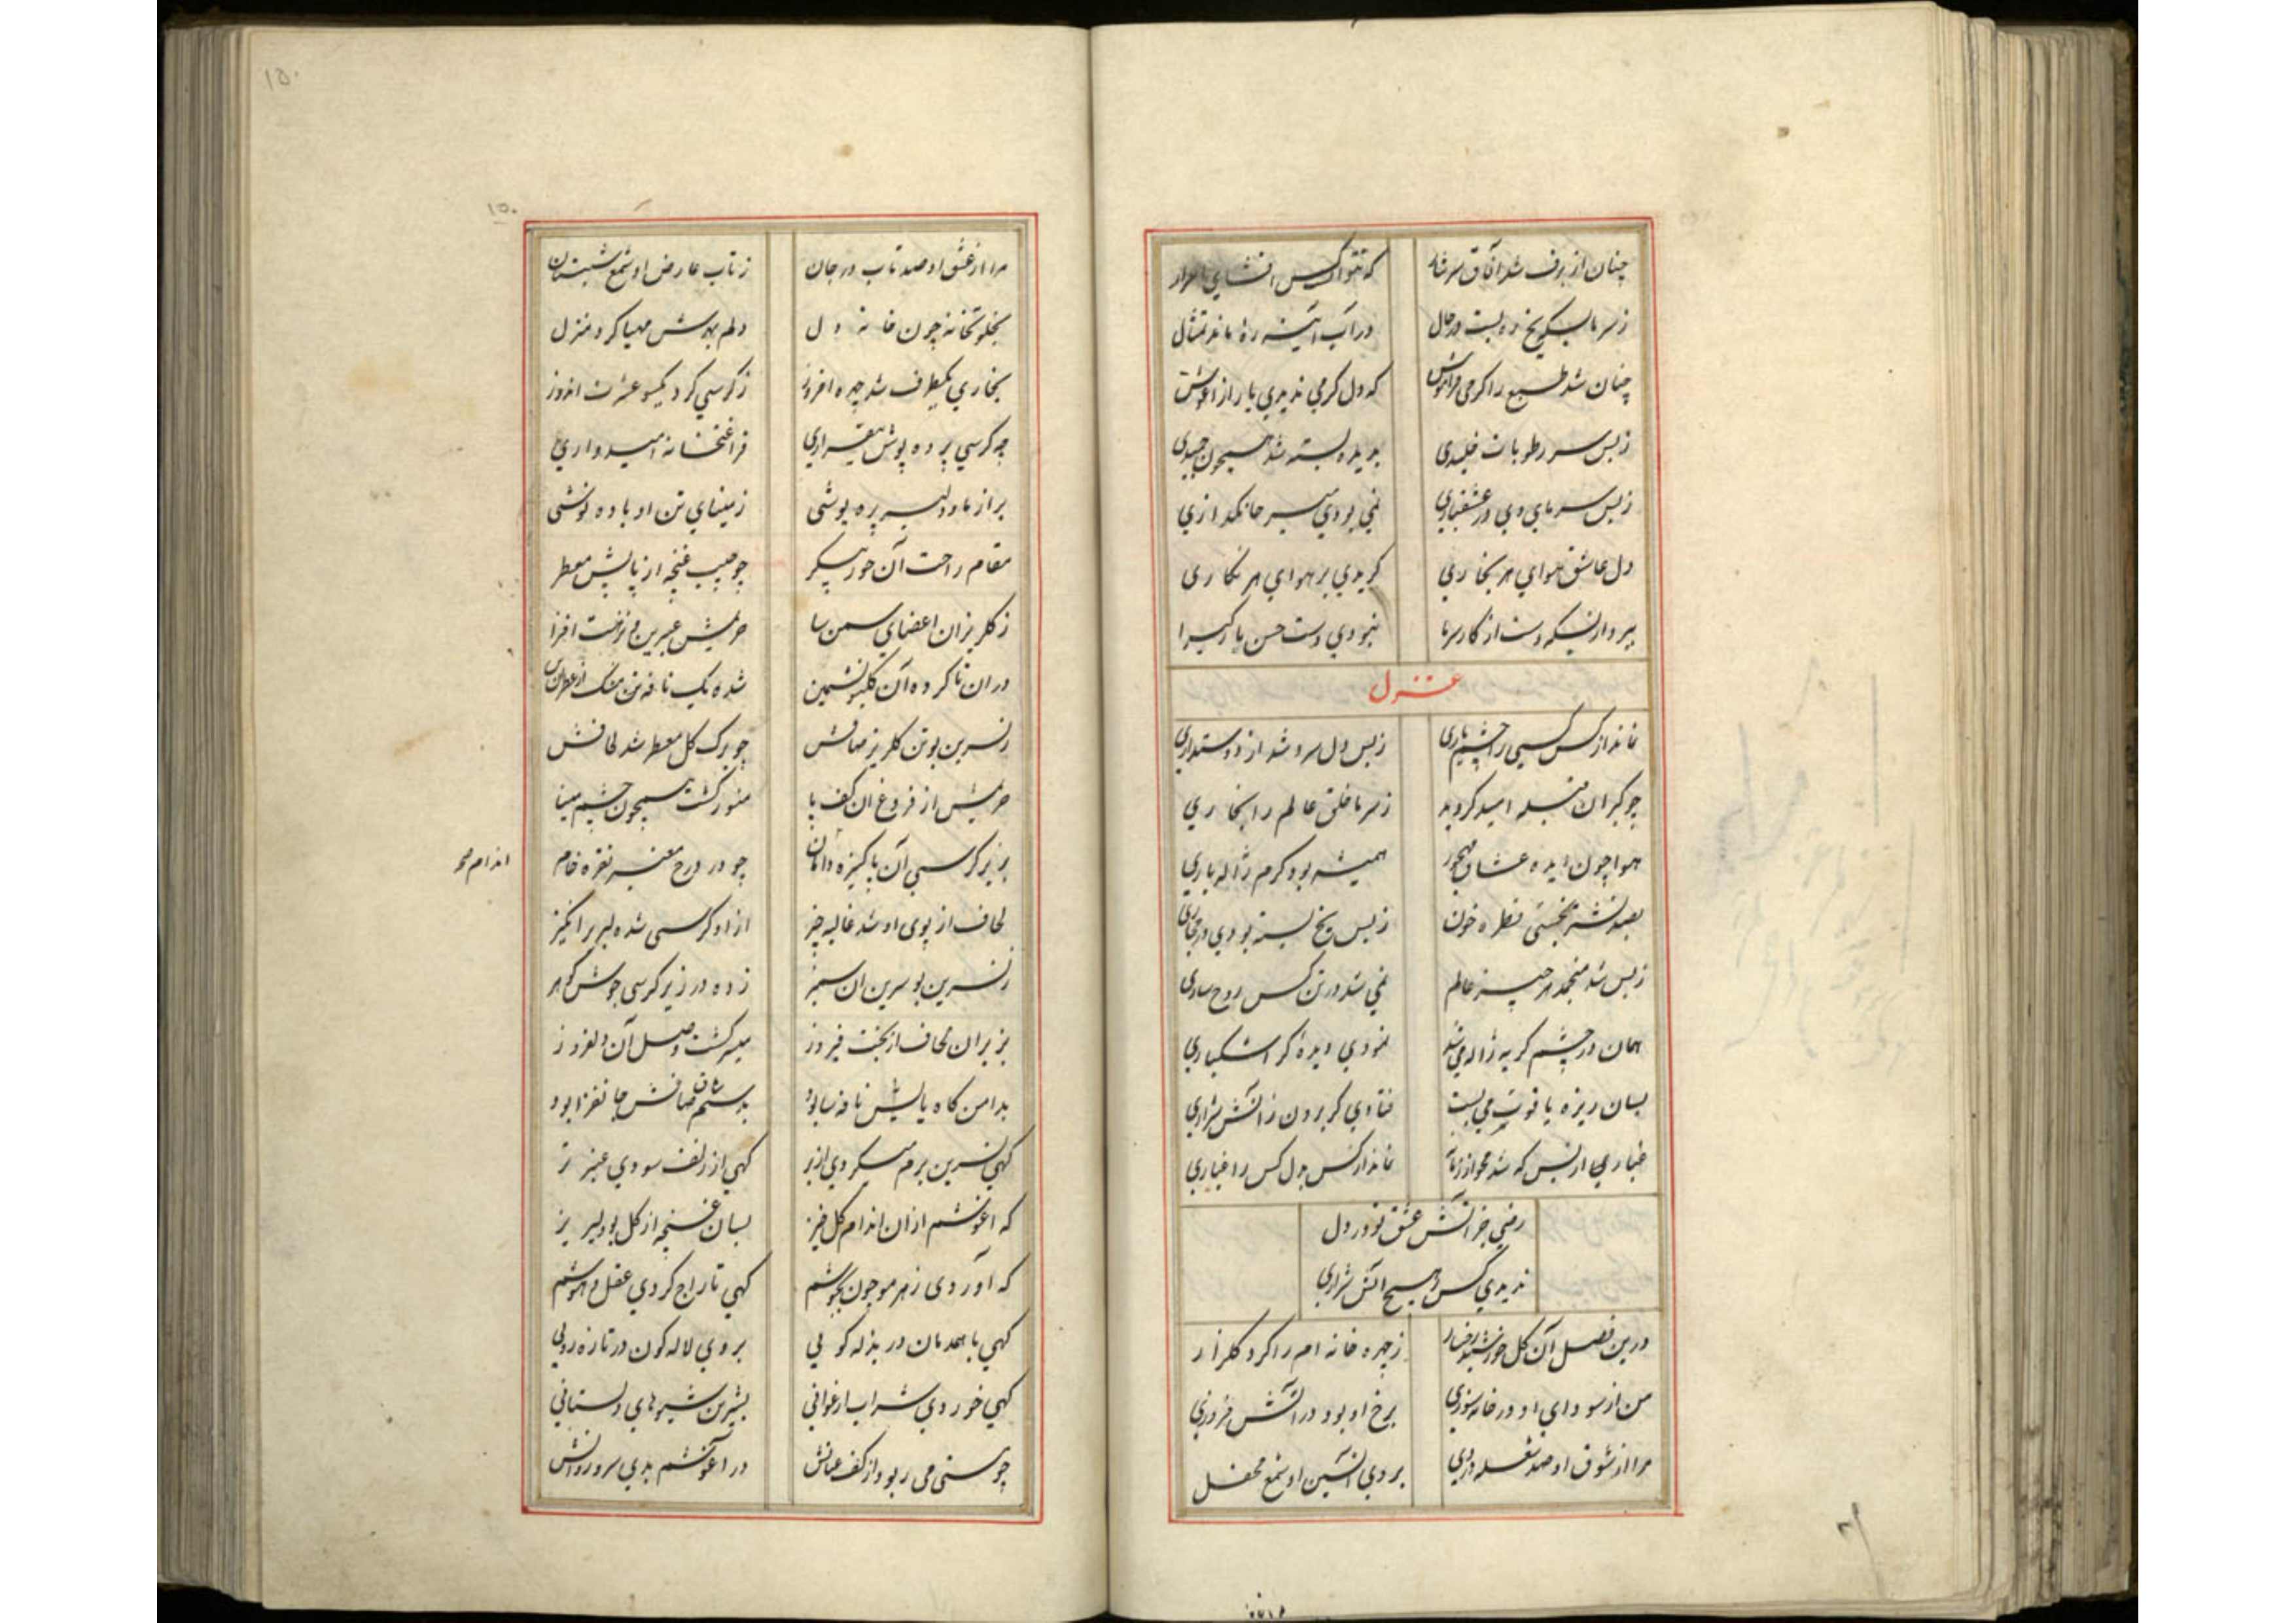 چنان از برف شد آفاق سرشار که نتواند کس افشای اسرار
ز سرما بسکه یخ ره بست در حال در آب آینه ره ماند تمثال
چنان شد طبع را گرمی فراموش که دل گرمی ندیدی یار از آغوش
ز بس سر رطوبات خلیدی بدیده بسته شد همچون جلیدی
ز بس سرمای دی در عشقبازی نمی بودی سر جانگدازی
دل عاشق هوای هر بخاری گزیدی بر هوای هر نگاری
ببرد از بسکه دست از کار سرما نبودی دست حسن یار گیرا
غزل
نماند از کس کسی را چشم یاری ز بس دل سرد شد از دوستداری
چو گبران قبله امید گردید ز سرما خلق عالم را بخاری
هوا چون دیده عشاق مهجور همیشه بود گرم ژاله باری
بصد نشتر نجستی قطره خون ز بس یخ بسته بودی در مجاری
ز بس شد منجمد هر چیز عالم نمی شد در تن کس روح ساری
همان در چشم گریه ژاله می شد نمودی دیدهٔ گر اشکباری
بسان ریزه یاقوت می بست فتادی گر برون ز آتش شراری
غباری از بس که شد محو از زمانه نماند از کس بدل کس را غباری
رضی جز آتش عشق تو در دل
ندیدی کس ز هیچ آتش شراری
درین فصل آن گل خورشید رخسار ز چهره خانه ام را کرد گلزار
من از سودای او در خانه سوزی برخ او بود در آتش فروزی
مرا از شوق او صد شعله در دل بروی آتشین او شمع محفل
۱۵۰
۱۵۰
مرا از عشق او صد تاب در جان ز تاب عارض او شمع شبستان
بخلوتخانه چون خانه دل دلم بهرش مهیا کرد منزل
بخاری یکطرف شد چهره افروز ز کرسی کرد یکسو عشرت اندوز
چه کرسی پرده پوش بیقراری فراغتخانه امیدواری
بر از ما و دلبر پرده پوشی ز مینای تن او باده نوشی
مقام راحت آن حور پیکر چو جیب غنچه از پایش معطر
ز گلریزان اعضای سمن سا حریمش عبرین و نزهت افزا
در ان تا کرده آن گلبو نشیمن شده یک نافه مشک از عطر آن تن
ز نسرین بوتن گلریز صافش چو برگ گل معطر شد لحافش
حریمش از فروغ ان کف پا منور گشت همچون چشم مینا
بزیر کرسی آن پاکیزه دامان چو در درج معنبر نقره خام
اندام محو
لحاف از بوی او شد غالیه خیز از او کرسی شده لبریز انگیز
ز نسرین بو سرین ان سمنبر زده در زیر کرسی جوش گوهر
بزیر ان لحاف از بخت فیروز میسر گشت وصل آن دلفروز
بدامن گاه پایش نافه سا بود بدستم ساق صافش جانفزا بود
گهی نسرین برم میکردی از بر گهی از زلف سودی عنبر تر
که آغوشم از ان اندام گل خیز بسان غنچه از گل بود لبریز
که آوردی ز هر مو چون بجوشم گهی تاراج کردی عقل و هوشم
گهی با همدمان در بذله گویی بروی لاله گون در تازه رویی
گهی خوردی شراب ارغوانی بشیرین شیوهای دلستانی
چو مستی می ربود از کف عنانش در آغوشم بدی سرو روانش